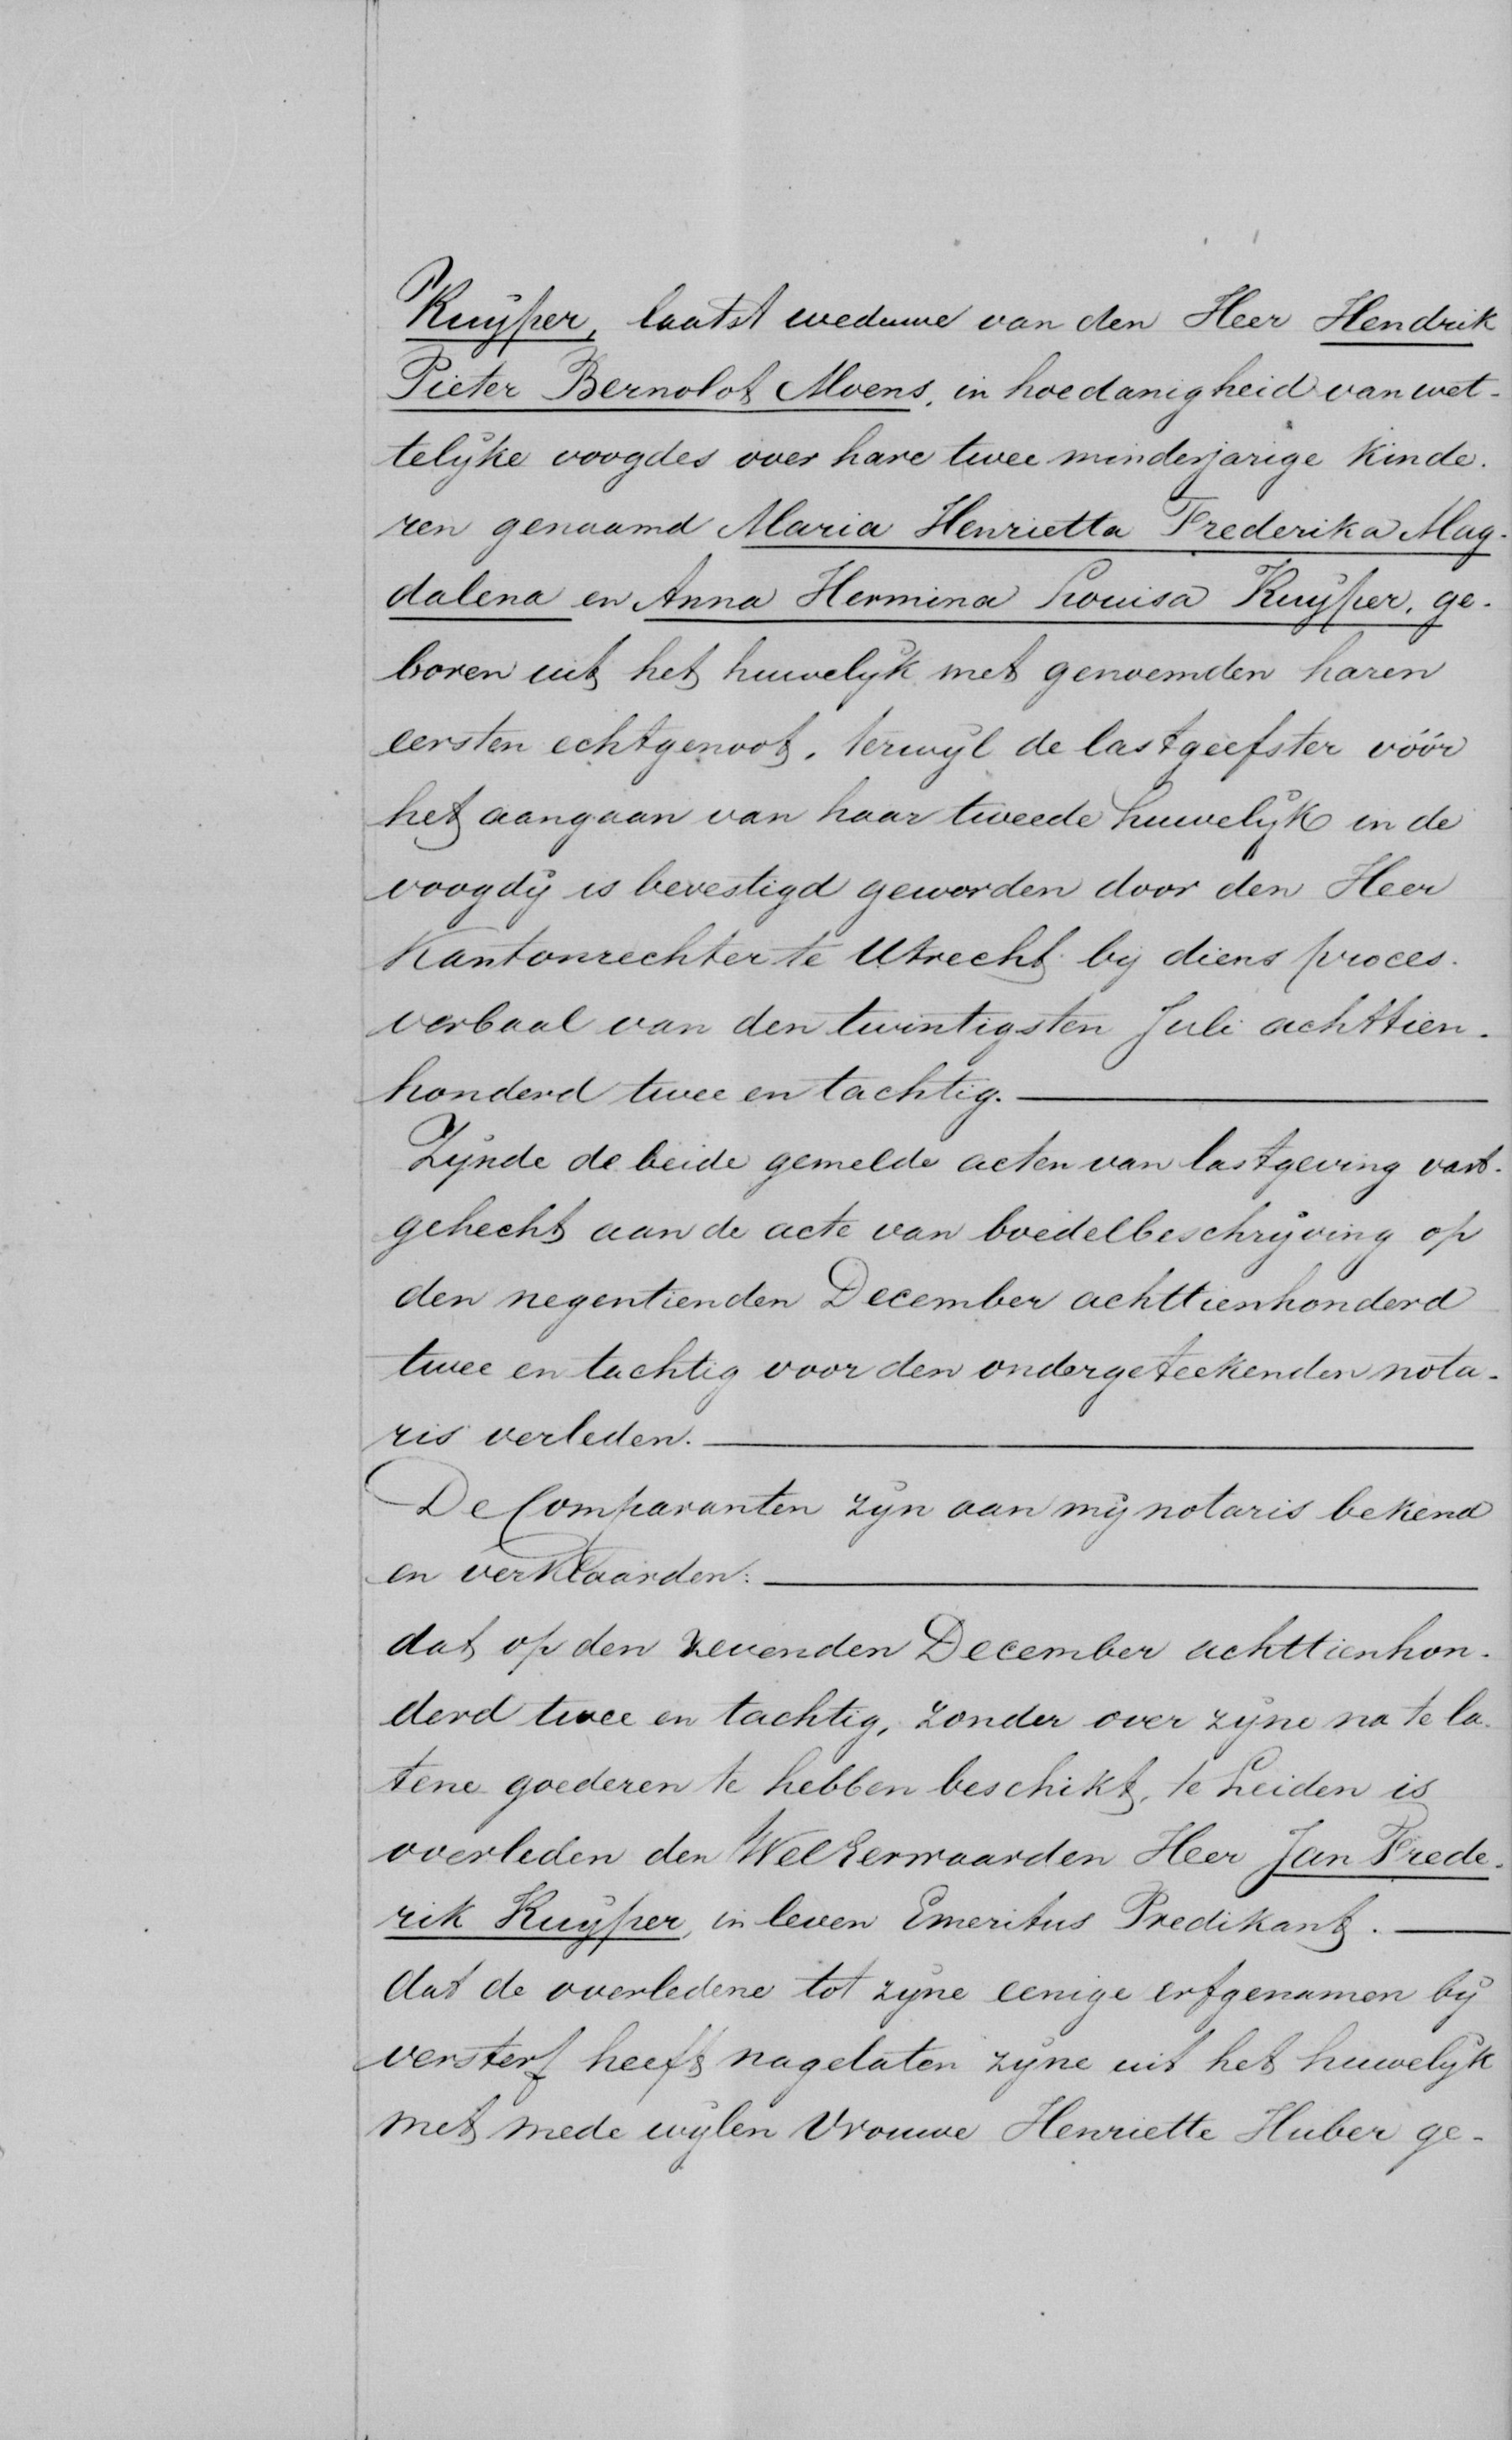 Kuijper, laatst weduwe van den Heer Hendrik
Pieter Bernolot Moens, in hoedanigheid van wet-
telijke voogdes over hare twee minderjarige kinde-
ren genaamd Maria Henrietta Frederika Mag-
dalena en Anna Hermina Louisa Kuijper, ge-
boren uit het huwelijk met genoemden haren
eersten echtgenoot, terwijl de lastgeefster vóór
het aangaan van haar tweede huwelijk in de
voogdij is bevestigd geworden door den Heer
Kantonrechter te Utrecht bij diens proces-
verbaal van den twintigsten Juli achttien-
honderd twee en tachtig.
Zijnde de beide gemelde acten van lastgeving vast-
gehecht aan de acte van boedelbeschrijving op
den negentienden December achttienhonderd
twee en tachtig voor den ondergeteekenden nota-
ris verleden.
De Comparanten zijn aan mij notaris bekend
en verklaarden:
dat op den zevenden December achttienhon-
derd twee en tachtig, zonder over zijne na te la-
tene goederen te hebben beschikt, te Leiden is
overleden den WelEerwaarden Heer Jan Frede-
rik Kuijper, in leven Emeritus Predikant.
dat de overledene tot zijne eenige erfgenamen bij
versterf heeft nagelaten zijne uit het huwelijk
met mede wijlen Vrouwe Henriette Huber ge-